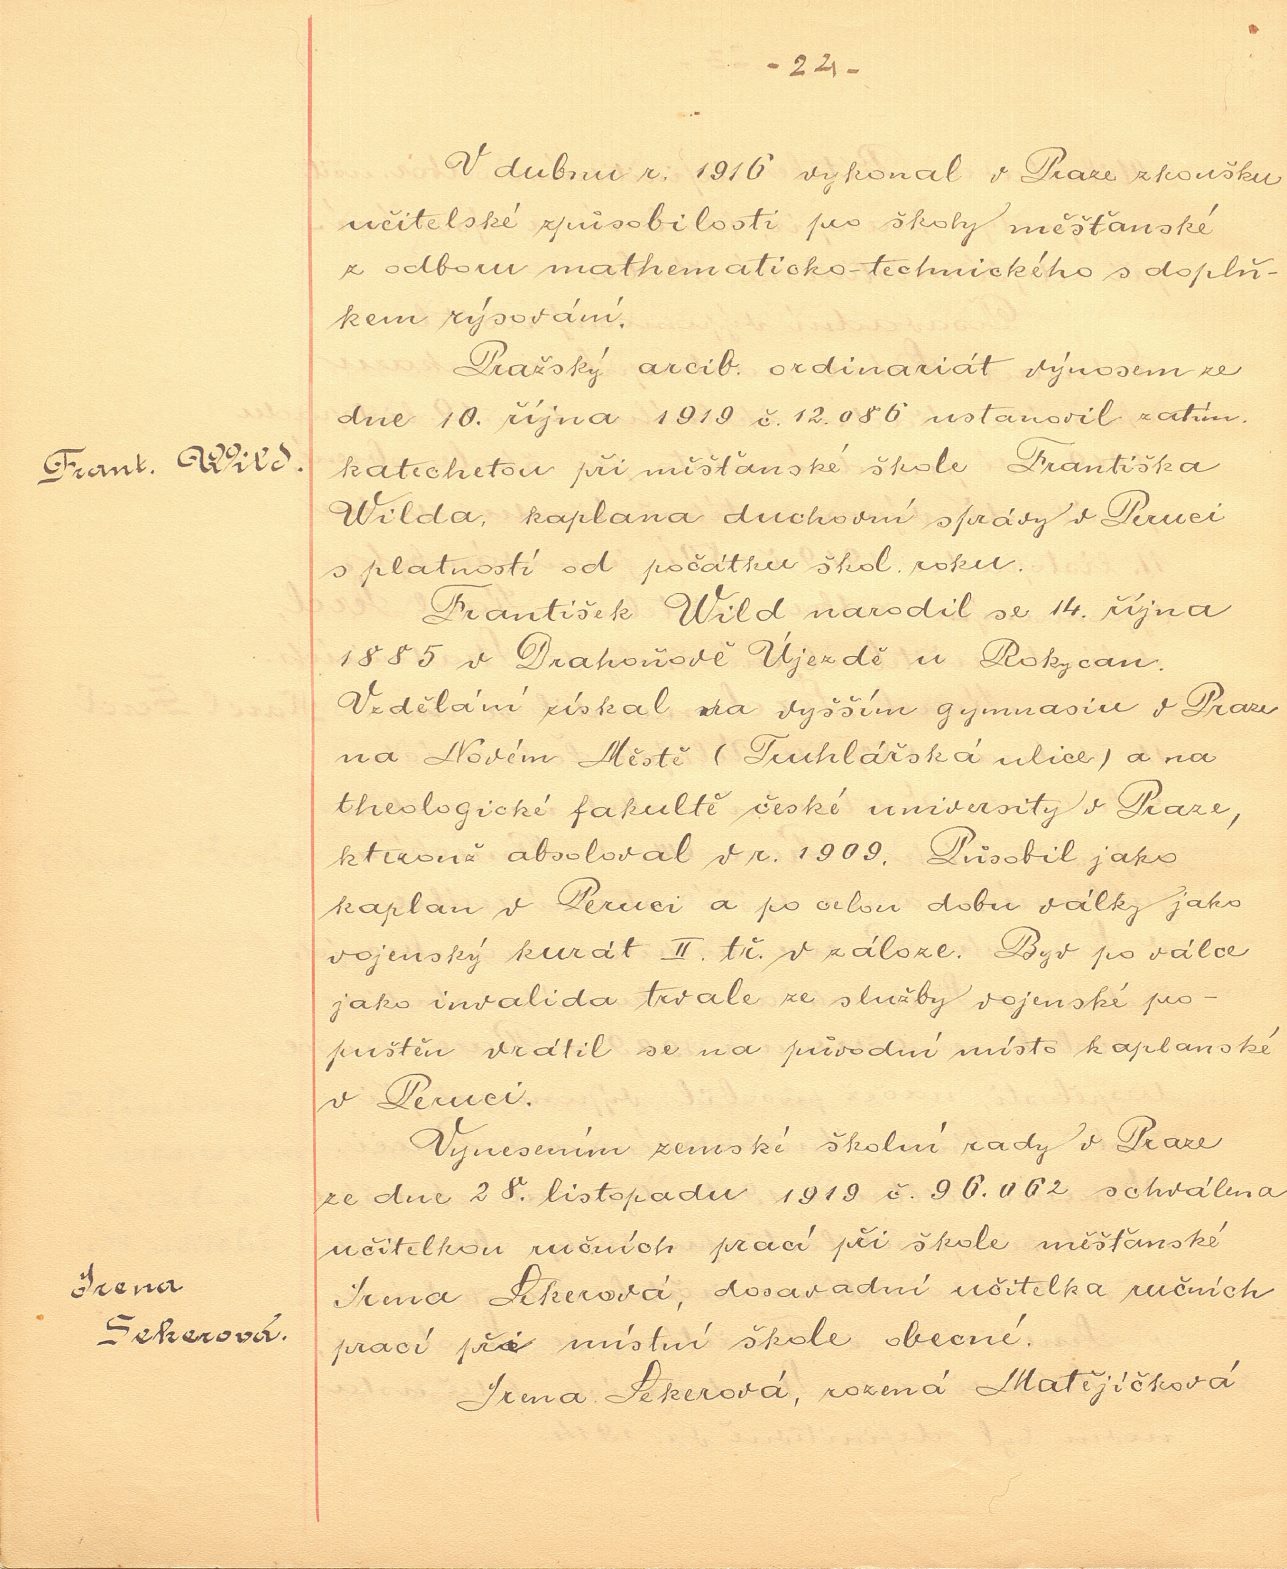 - 22 -
V dubnu r. 1916 vykonal v Praze zkoušku
učitelské způsobilosti pro školy měšťanské
z odboru mathematicko-technického s doplň-
kem rýsování.
Pražský arcib. ordinariát výnosem ze
dne 10. října 1919 č. 12.086 ustanovil zatím.
Frant. Wild.
katechetou při měšťanské škole Františka
Wilda, kaplana duchovní správy v Peruci
s platností od počátku škol. roku.
František Wild narodil se 14. října
1885 v Drahoňově Újezdě u Rokycan.
Vzdělání získal na vyšším gymnasiu v Praze
na Novém Městě (Truhlářská ulice) a na
theologické fakultě české university v Praze,
kterouž absoloval v r. 1909. Působil jako
kaplan v Peruci a po celou dobu války jako
vojenský kurát II. tř. v záloze. Byv po válce
jako invalida trvale ze služby vojenské pro-
puštěn vrátil se na původní místo kaplanské
v Peruci.
Vynesením zemské školní rady v Praze
ze dne 28. listopadu 1919 č. 96.062 schválena
učitelkou ručních prací při škole měšťanské
Irena
Sekerová.
Irena Sekerová, dosavadní učitelka ručních
prací při místní škole obecné.
Irena Sekerová, rozená Matějíčková